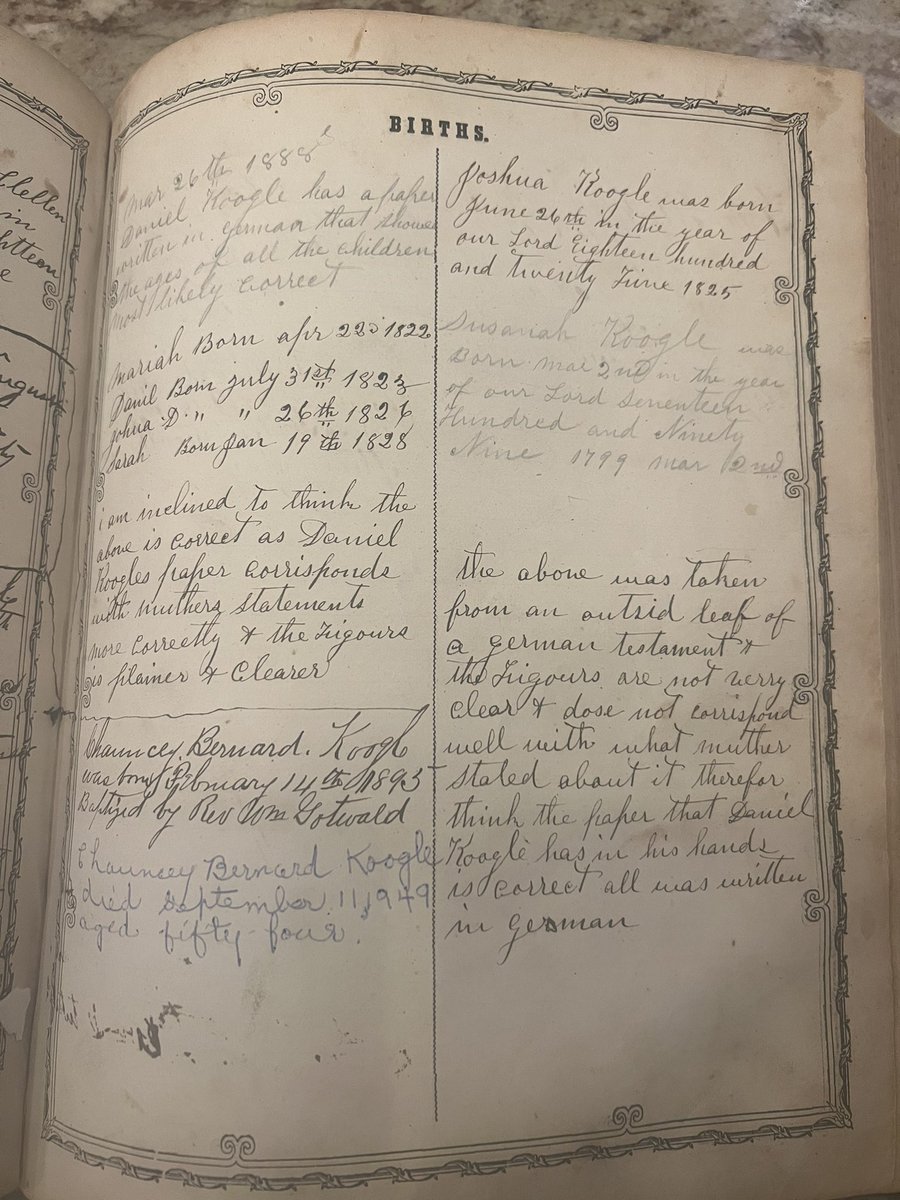 BIRTHS.
Mar 26th 1888
Daniel Koogle has a paper
written in german that shows
the ages of all the children
most likely correct
Mariah Born apr 22d 1822
Danil Born july 31st 1823
Johua D. " " 26th 1826
Sarah Born Jan 19th 1828
i am inclined to think the
above is correct as Daniel
Koogles paper corrisponds
with muthers statements
more correctly & the Figours
is plainer & Clearer
Chauncey Bernard. Koogl
was born February 14th 1895
Baptized by Rev Wm Gotwald
Chauncey Bernard Koogle
died september 11, 1949
aged fifty four.
Joshua Koogle was born
June 26th in the year of
our Lord Eighteen hundred
and twenty Five 1825
Susanah Koogle was
Born Mar 2nd in the year
of our Lord Seventeen
Hundred and Ninety
Nine 1799 mar 2nd
the above was taken
from an outsid leaf of
a german testament &
the Figours are not verry
Clear & dose not corrispond
well with what muther
stated about it therefor
think the paper that Daniel
Koogle has in his hands
is correct all was written
in german
Llellen
in
hteen